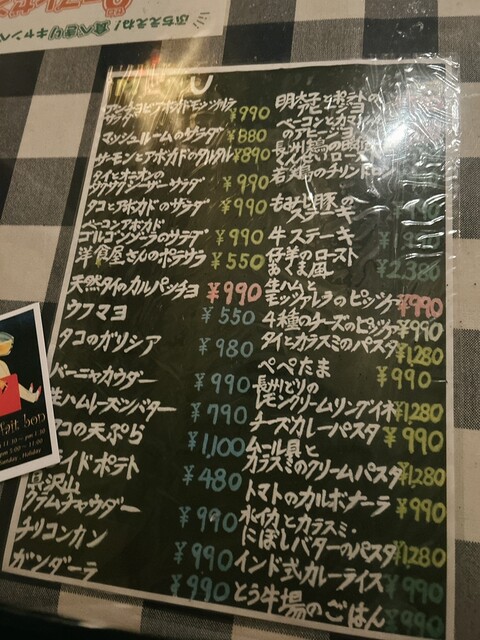 ぶちええね！食べきりキャンペ
MENU
アンチョビアボカドモッツァレラ
サラダ ¥990
マッシュルームのサラダ ¥880
サーモンとアボカドのタルタル ¥890
タイとオニオンの
サクサクシーザーサラダ ¥990
タコとアボカドのサラダ ¥990
ベーコンアボカド
ゴルゴンゾーラのサラダ ¥990
洋食屋さんのポテサラ ¥550
天然タイのカルパッチョ ¥990
ウフマヨ ¥550
タコのガリシア ¥980
バーニャカウダー ¥990
生ハムレーズンバター ¥790
タコの天ぷら ¥1,100
イドポテト ¥480
貝沢山
クラムチャウダー ¥990
チリコンカン ¥990
ガンダーラ ¥990
明太子とポテトの
アヒージョ
ベーコンとカマン
のアヒージョ
長州鶏の
ロース
若鶏のチリンドロン
もみじ豚の
ステーキ
牛ステーキ
仔羊のロースト
おくま風 ¥2,380
生ハムと
モッツァレラのピッツァ ¥990
4種のチーズのピッツァ ¥990
タイとカラスミのパスタ ¥1,280
ペペたま ¥990
長州どりの
レモンクリームリングイネ ¥1,280
チーズカレーパスタ ¥990
ムール貝と
カラスミのクリームパスタ ¥1,280
トマトのカルボナーラ ¥990
水イカとカラスミ・
にぼしバターのパスタ ¥1,280
インド式カレーライス ¥990
とう牛場のごはん ¥990
fait bon